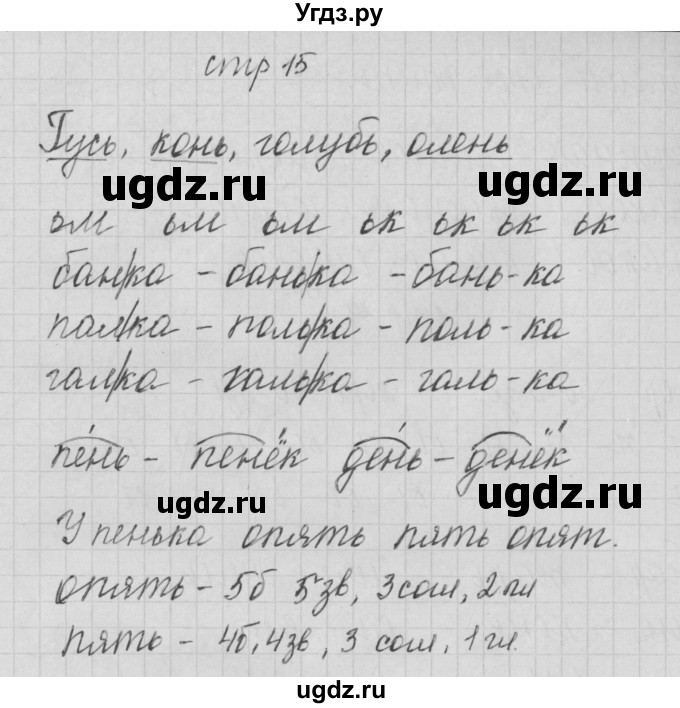 Угдз.ру
стр 15
Гусь, конь, голубь, олень
ugdz.ru ugdz.ru
ьм ьм ьм ьк ьк ьк ьк
бан/ка - бань/ка - бань-ка
пол/ка - поль/ка - поль-ка
гал/ка - галь/ка - галь-ка
пе́нь - пенёк де́нь - денёк
ugdz.ru ugdz.ru
У пенька опять пять опят.
опять - 5б 5зв, 3 сог, 2 гл
пять - 4б, 4зв, 3 сог, 1 гл.
ugdz.ru